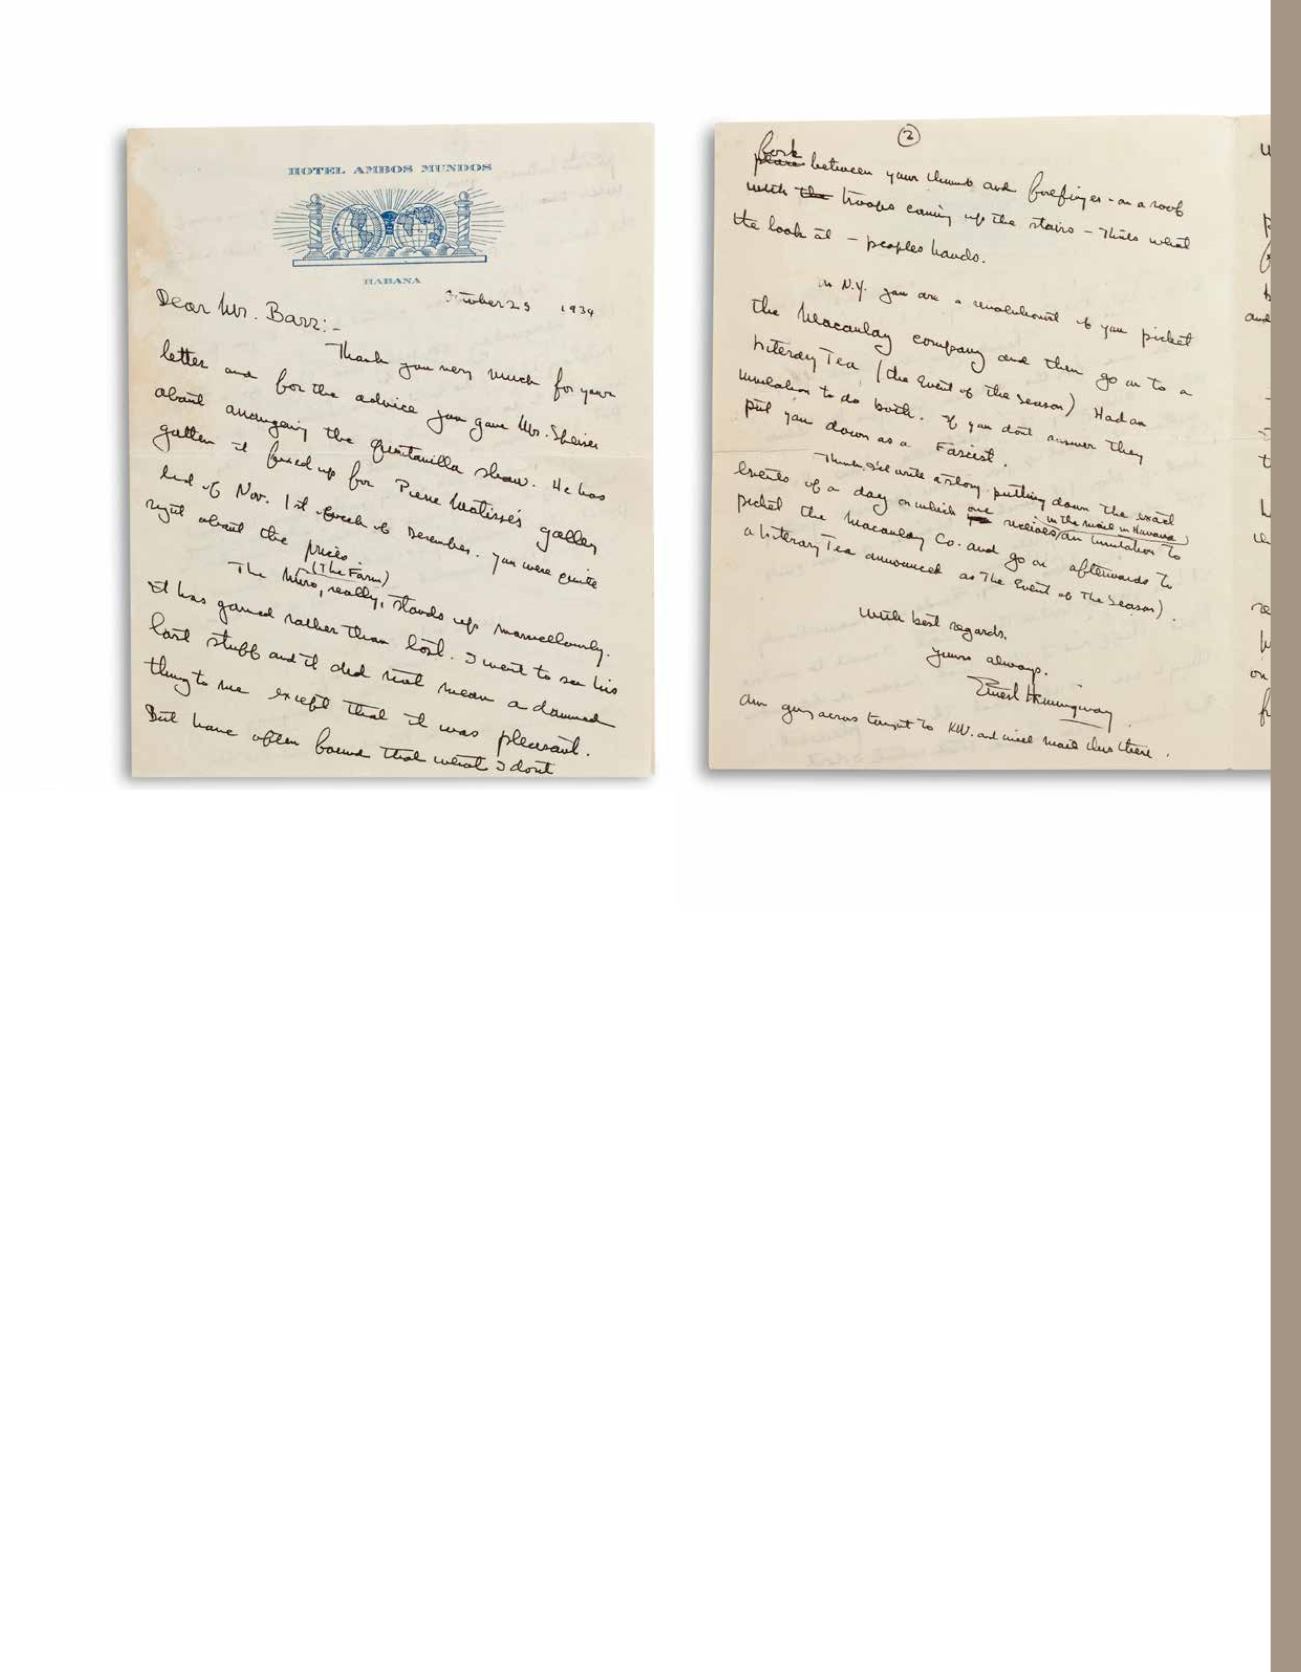 HOTEL AMBOS MUNDOS
HABANA
October 25 1934
Dear Mr. Barr:-
Thank you very much for your
letter and for the advice you gave Mr. Speiser
about arrangeing the Quintanilla show. He has
gotten it fixed up for Pierre Matisse's gallery
end of Nov. 1st week of December. You were quite
right about the prices
(The Farm)
The Miro, really, stands up marvellously.
It has gained rather than lost. I went to see his
last stuff and it did not mean a damned
thing to me except that it was pleasant.
But have often found that what I dont
2
fork
between your thumb and forefinger - on a roof
with the troops coming up the stairs - Thats what
the look at - peoples hands.
In N.Y. you are a revolutionist if you picket
the Macaulay company and then go on to a
Literary Tea (the Event of the Season) Had an
invitation to do both. If you dont answer they
put you down as a Fascist.
Think I'll write a story putting down the exact
events of a day on which one recieves an invitation to
in the mail in Havana
picket the Macaulay Co. and go on afterwards to
a Literary Tea announced as The Event of The Season).
With best regards.
Yours always.
Ernest Hemingway.
Am going across tonight to KW. and will mail this there.
and
on